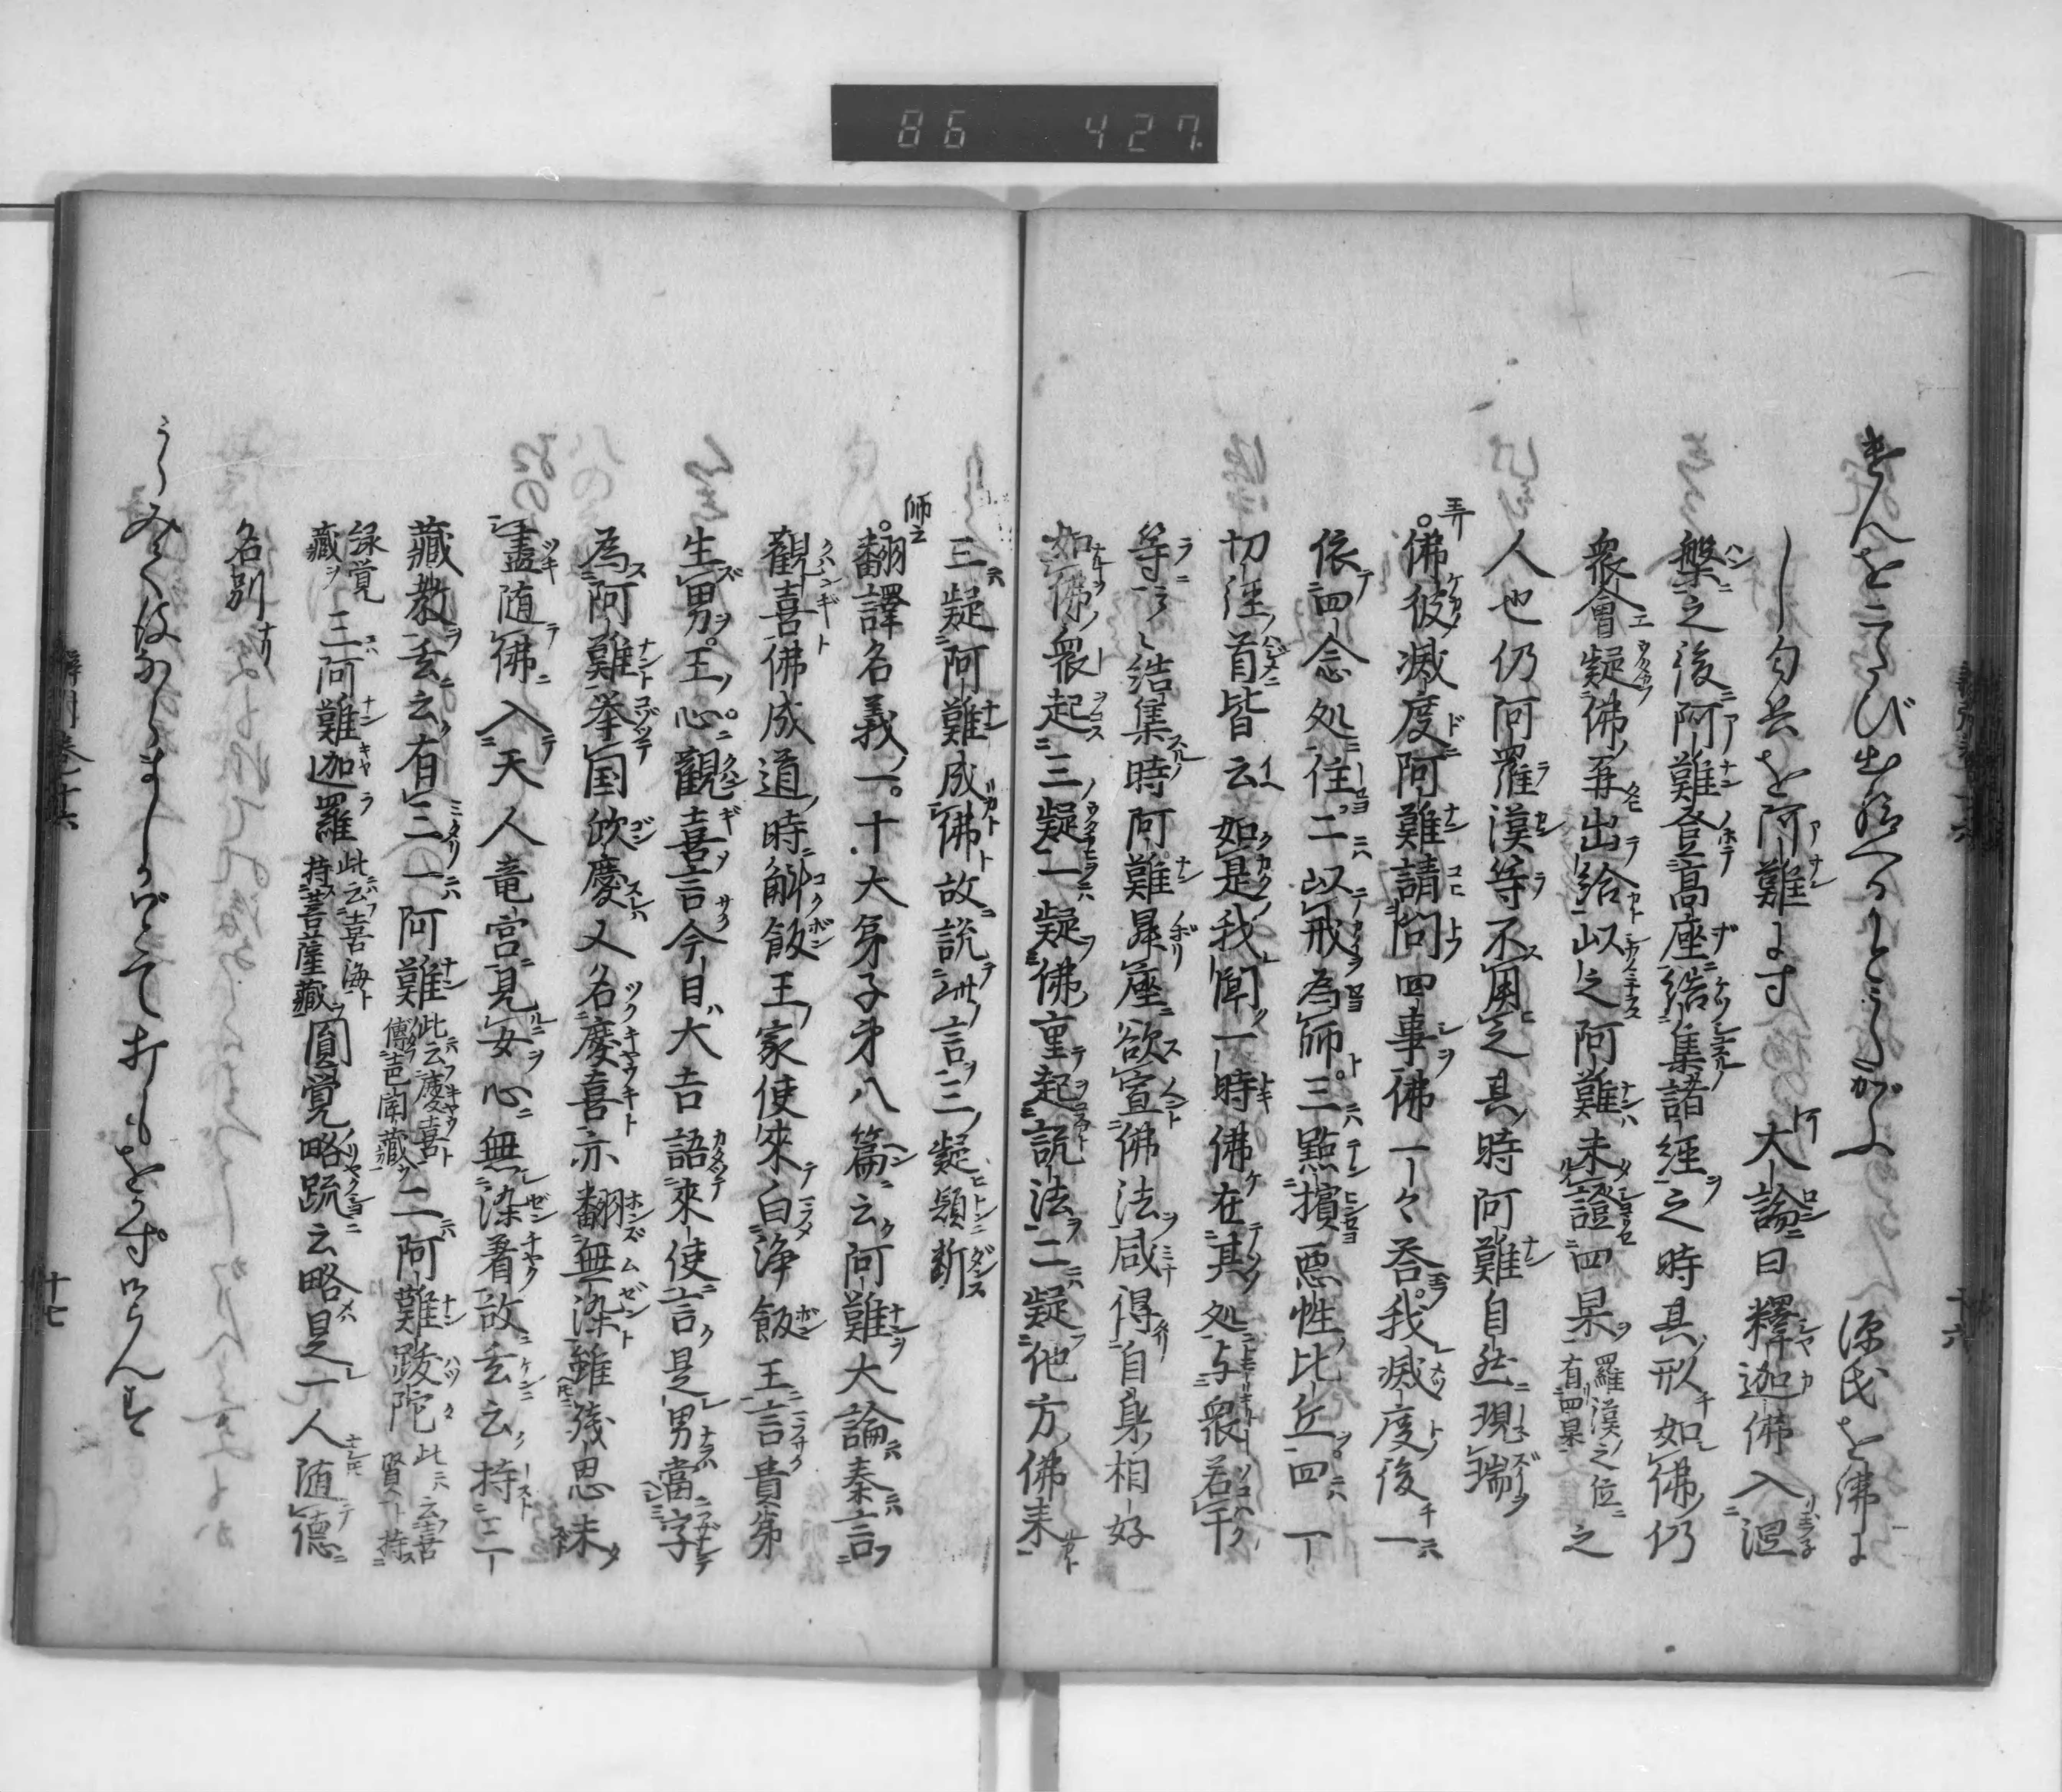 86 427
せんをこたび出給へるかとうたがふ 源氏を佛に
し匂兵を阿難にす 大論曰釋迦佛入涅
槃之後阿難登髙座結集諸経之時其形如佛仍
衆會疑佛再出給以之阿難未證四果 羅漢之位有四果 之
人也仍阿羅漢等不用之其時阿難自然現瑞
弄 佛彼滅度阿難請問四事佛一々荅我滅度後一
依四念処住二以戒為師三點擯悪性比丘四一
切経首皆云如是我聞一時佛在其処与衆若干
等云々結集時阿難昇座欲宣佛法感得自身相好
如佛衆起三疑一疑佛重起説法二疑他方佛来
三疑阿難成佛故説此言三疑頓断
師云 翻譯名義一十大弟子才八篇云阿難大論秦言
觀喜佛成道時斛飯王家使來白淨飯王言貴弟
生男王心觀喜言今日大吉語來使言是男當字
為阿難挙国欣慶又名慶喜亦翻無染雖残思未
盡随佛入天人竜宮見女心無染着故玄云持三
藏教玄云有三一阿難 此云慶喜 傳声聞藏 二阿難跋陀 此云喜賢持
縁覚藏 三阿難迦羅 此云喜海持菩薩藏 圓覚略疏云略是一人随德
名別
うみく
打しもをかず
十七